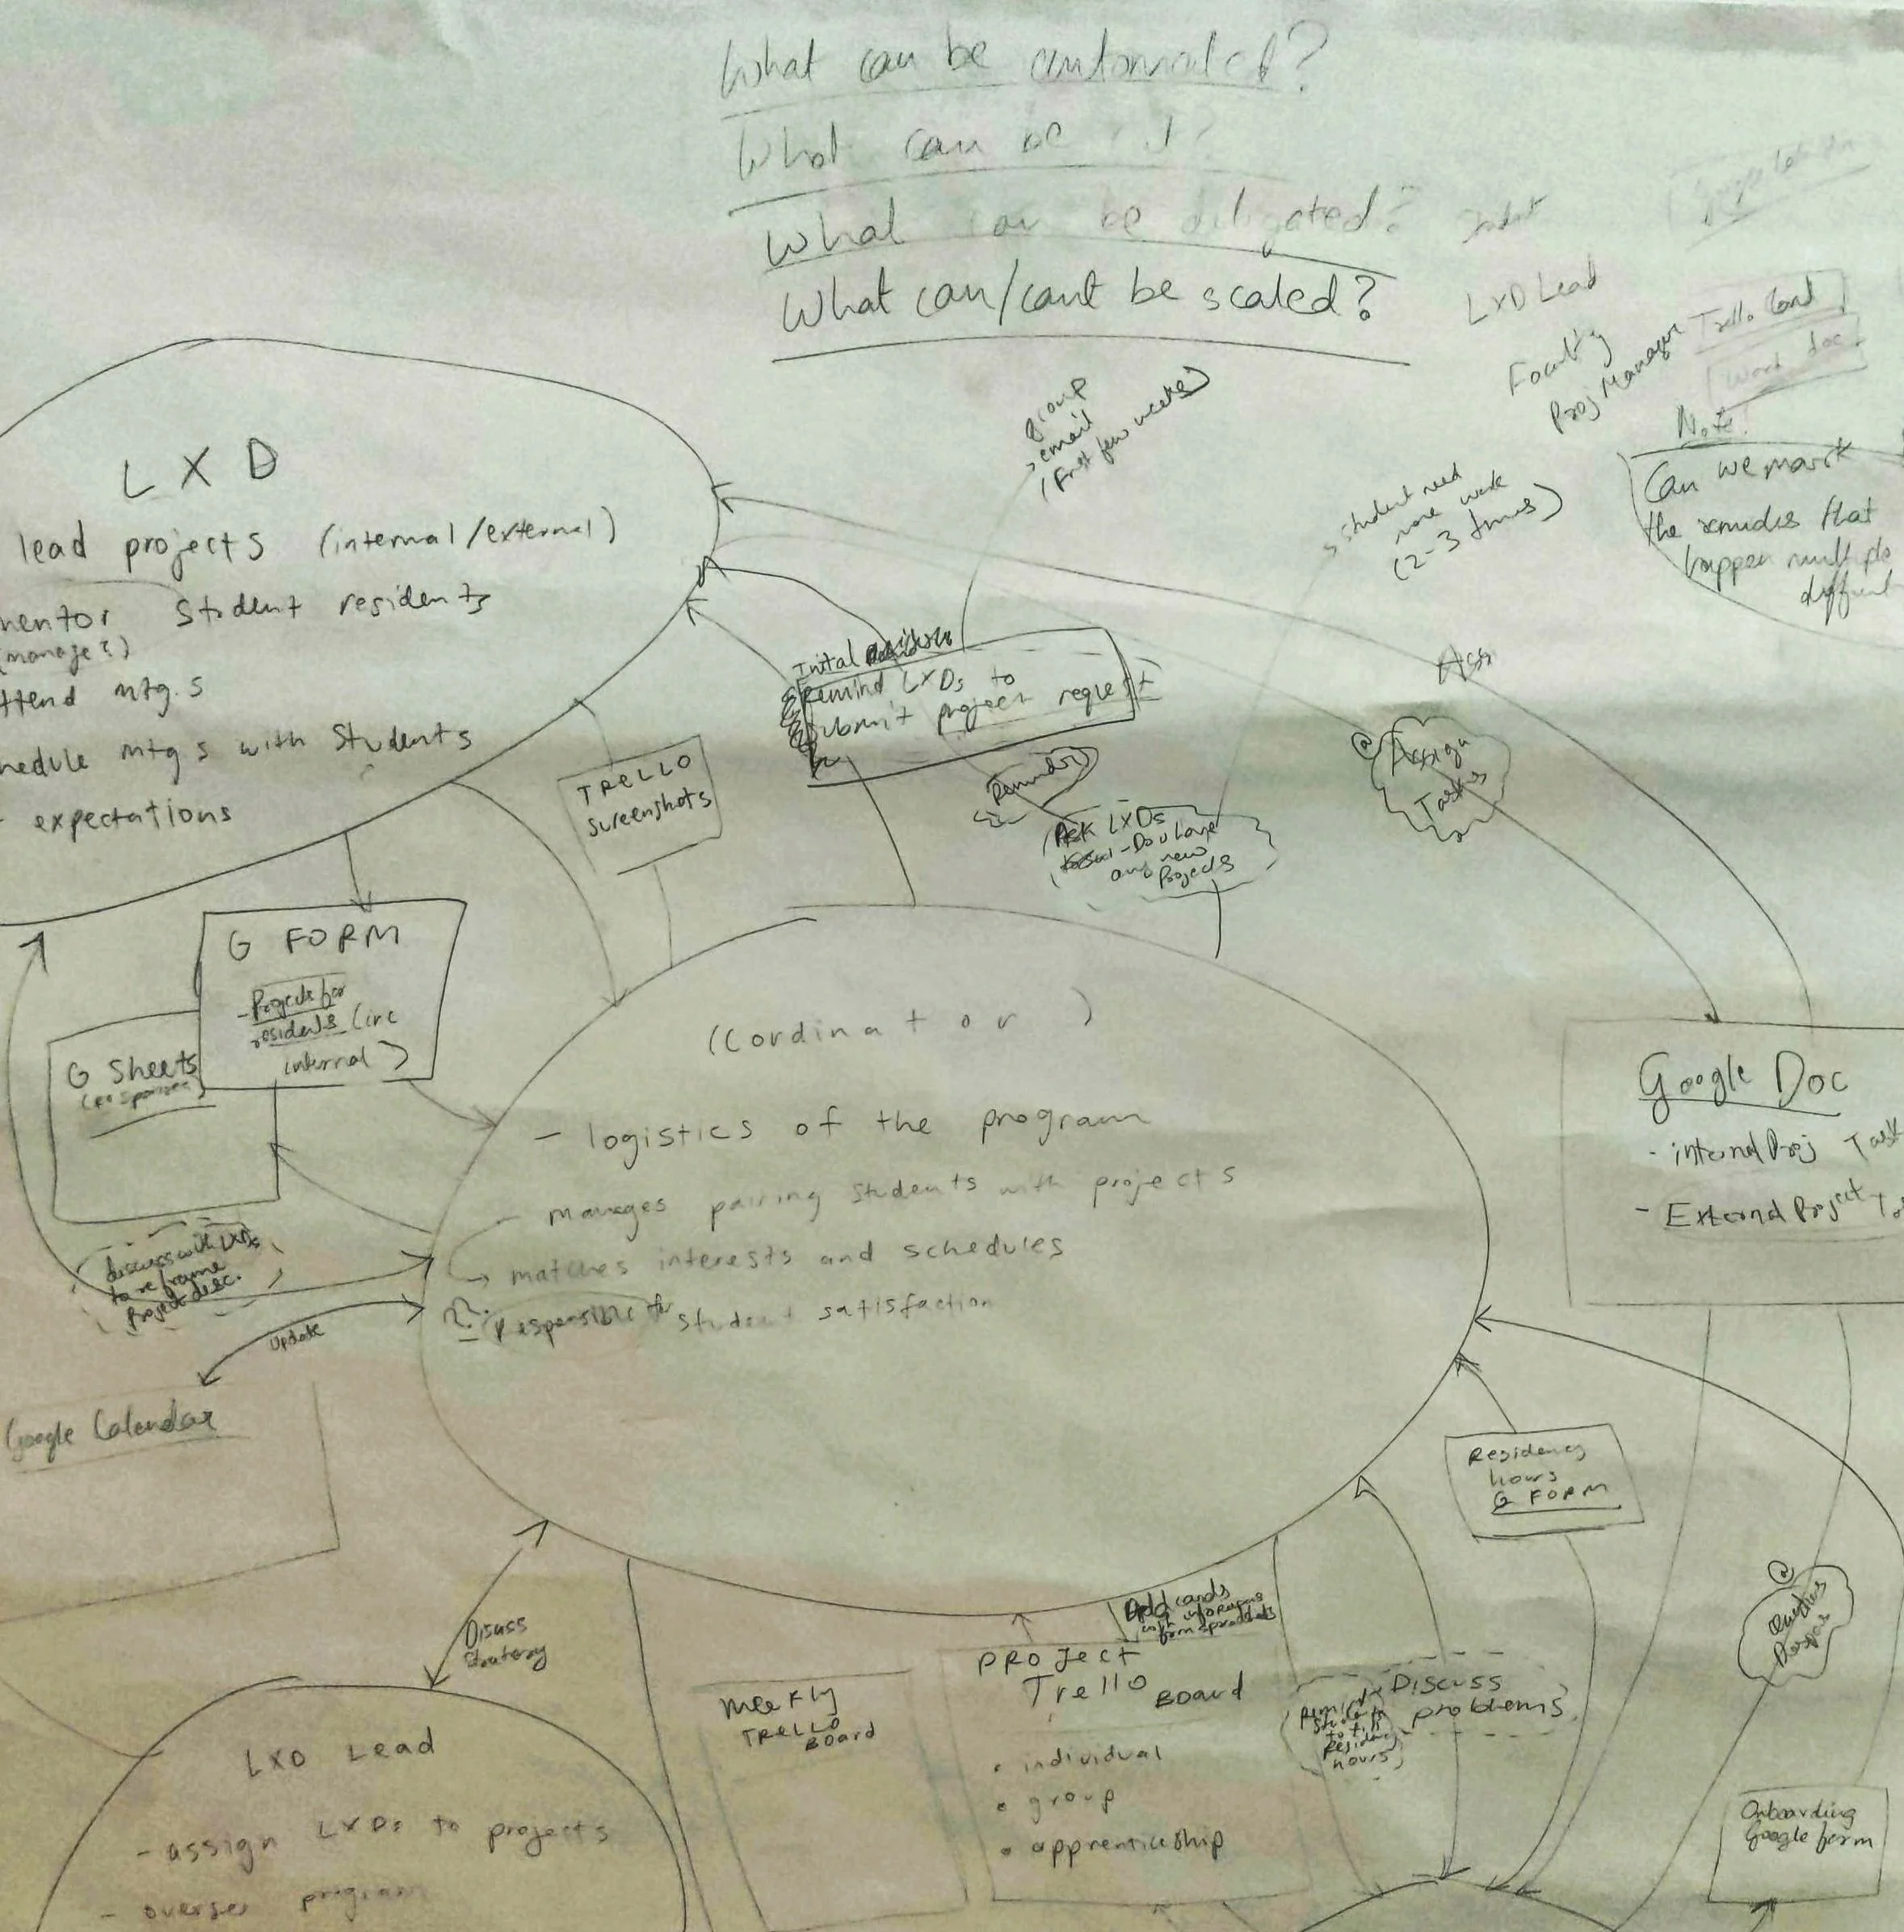 What can be automated?
What can be
What can be diligated?
What can/cant be scaled?
LXD Lead
Faculty
Proj Manager
Trello Card
Word doc
Note!
Can we mark
the
happen multiple
group
email
(First few weeks)
student need
more work
(2-3 times)
LXD
lead projects (internal/external)
mentor student residents
(manage?)
attend mtg.s
schedule mtg s with students
expectations
Inital
Remind LXDs to
submit project request
TRELLO
Screenshots
Ask LXDs
- Do u have
any new
Projects
@
Assign
Tasks
G FORM
- Projects for
residents (inc
internal)
G Sheets
(responses)
discuss with LXDs
to reframe
Project desc.
update
Google Calendar
(Cordinator)
- logistics of the program
- manages pairing students with projects
→ matches interests and schedules
Responsible for student satisfaction
Google Doc
- internal Proj Task
- External Project
Residency
hours
G FORM
@
Discuss
Strategy
Add cards
with
from spreadsheets
PROJECT
Trello BOARD
• individual
• group
• apprenticeship
WEEKLY
TRELLO
BOARD
Discuss
problems
Remind
students
to fill
Residency
hours
Onboarding
Google form
LXD Lead
- assign LXDs to projects
- oversee program